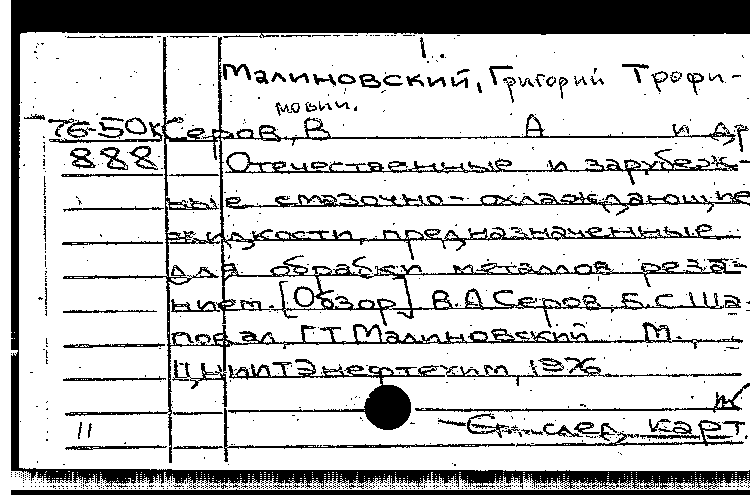 1.
Малиновский, Григорий Трофи-
мович.
76-50к Серов, В А и др
888 Отечественные и зарубеж-
ные смазочно-охлаждающие
жидкости, предназначенные
для обрабки металлов реза-
нием. [Обзор] В.А Серов, Б.С Ша-
повал, Г Т Малиновский М.,
ЦНИИТЭнефтехим, 1976
11 след карт.